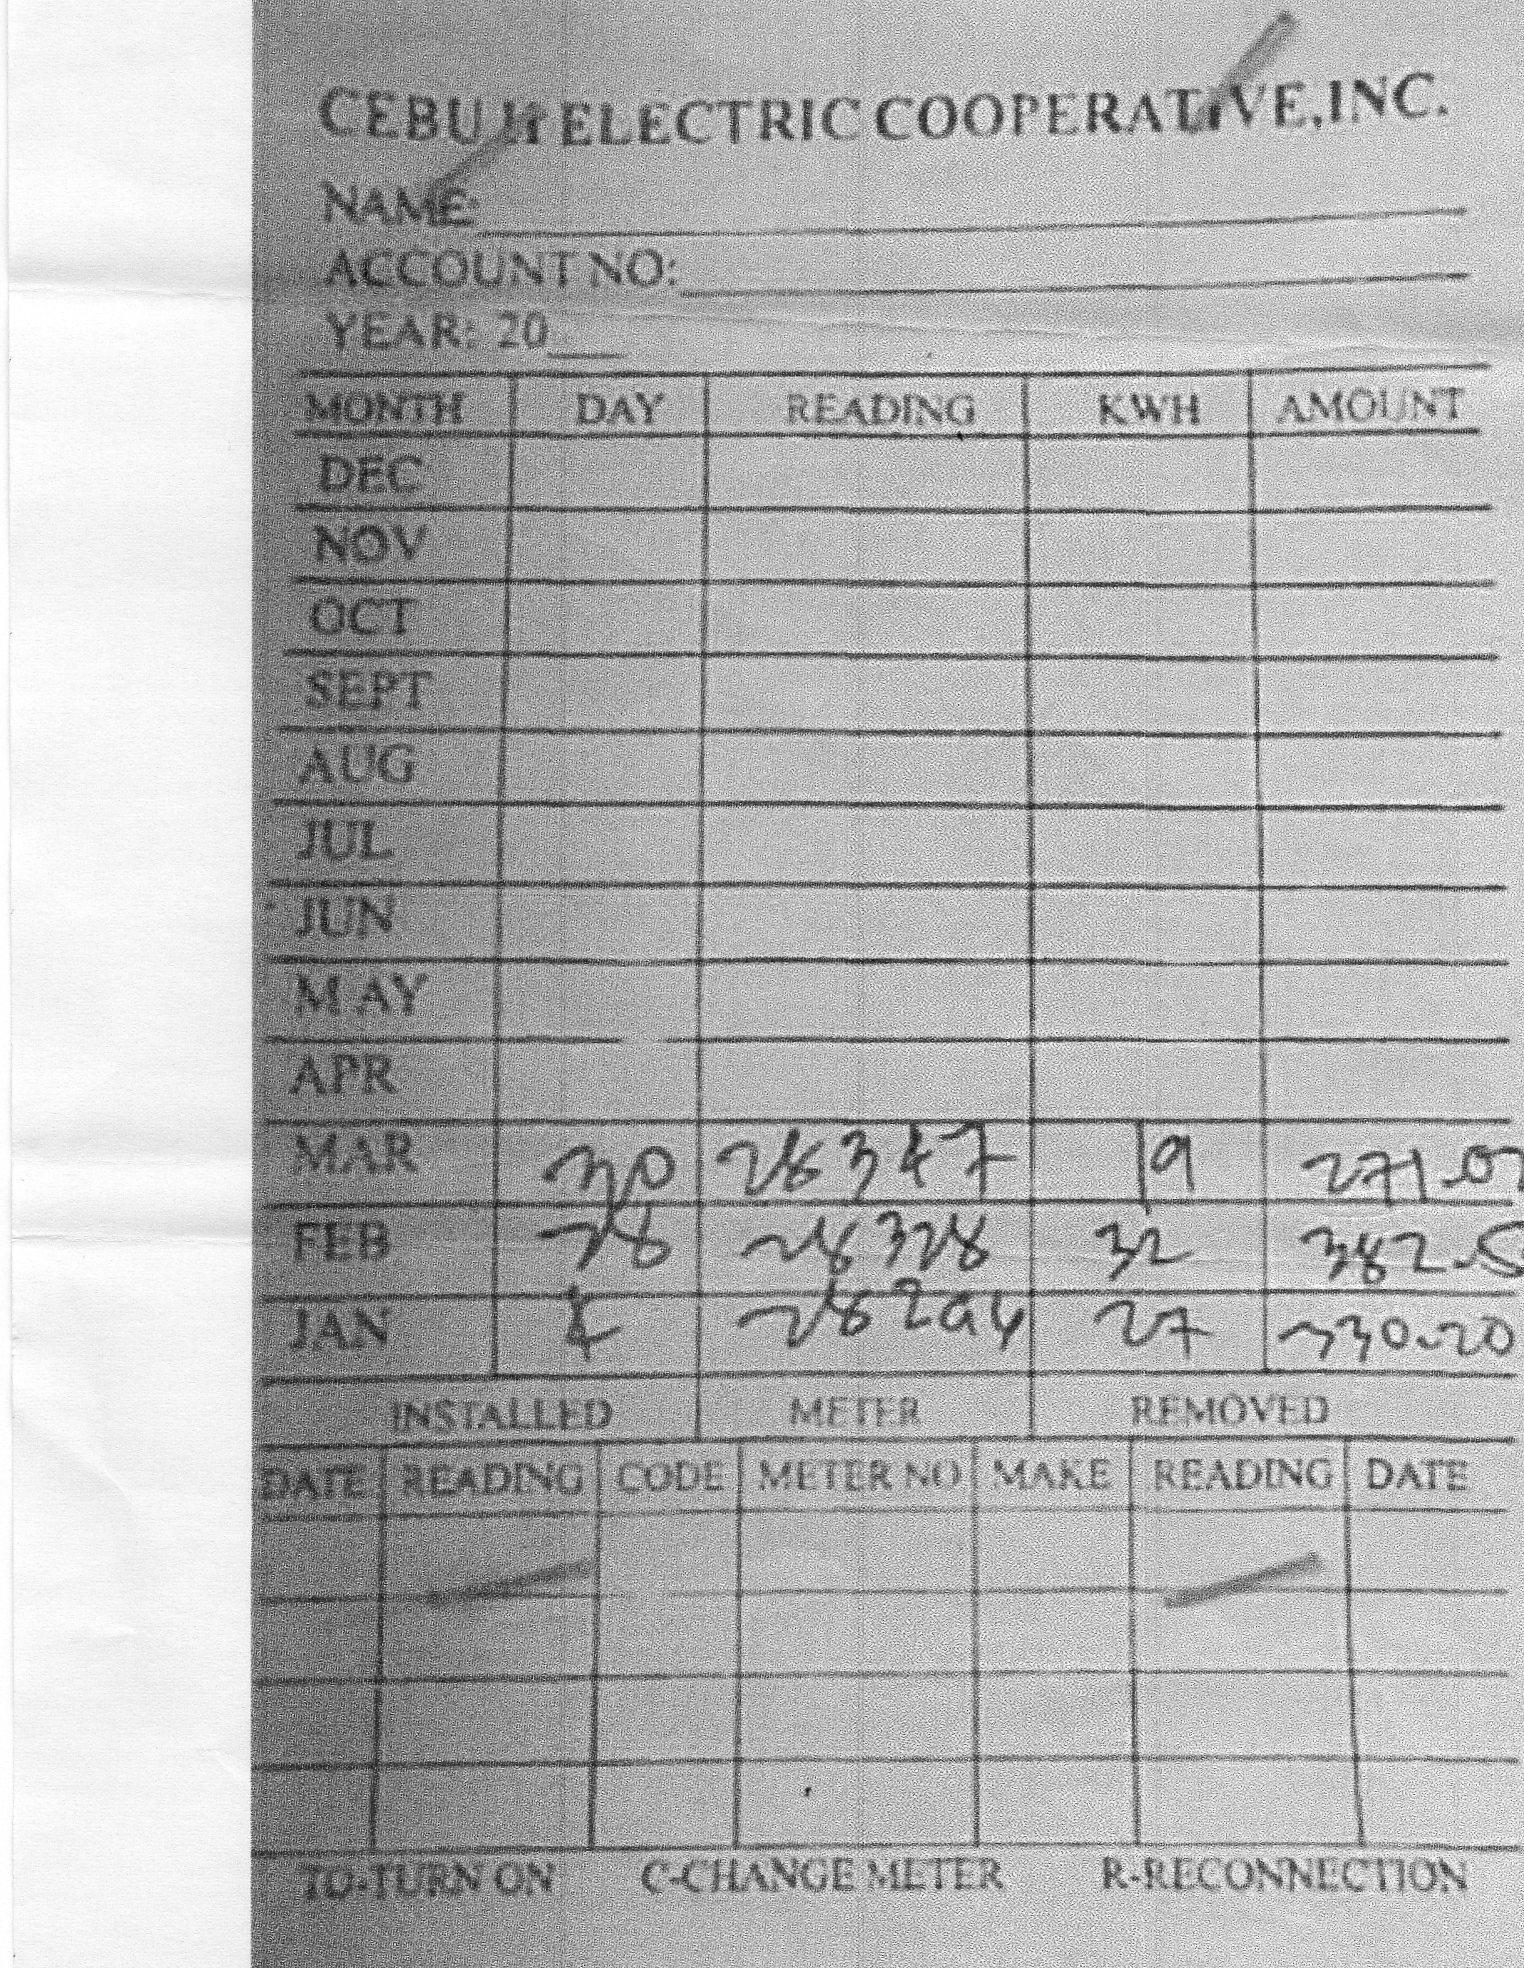 CEBU II ELECTRIC COOPERATIVE, INC.
NAME:
ACCOUNT NO:
YEAR: 20__
MONTH DAY READING KWH AMOUNT
DEC
NOV
OCT
SEPT
AUG
JUL
JUN
MAY
APR
MAR 30 28347 19
FEB 28 28328 32
JAN 27 330.20
INSTALLED METER REMOVED
DATE READING CODE METER NO MAKE READING DATE
TO-TURN ON C-CHANGE METER R-RECONNECTION